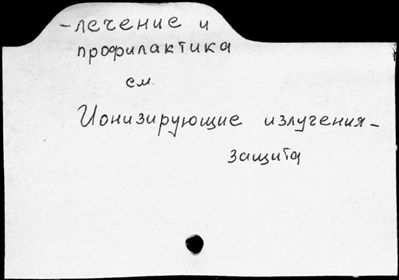 -лечение и
профилактика
см.
Ионизирующие излучения-
защита